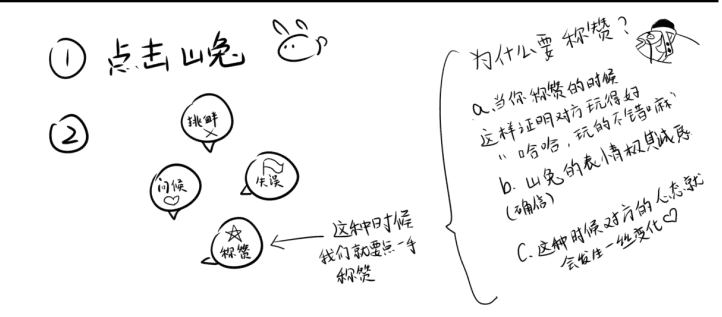 ① 点击山兔
②
挑衅
问候
失误
称赞
这种时候
我们就要点一手
称赞
为什么要称赞？
a.当你称赞的时候
这样证明对方玩得好
“哈哈，玩的不错嘛”
b.山兔的表情极具威慑
(确信)
C.这种时候对方的心态就
会发生一丝变化♡